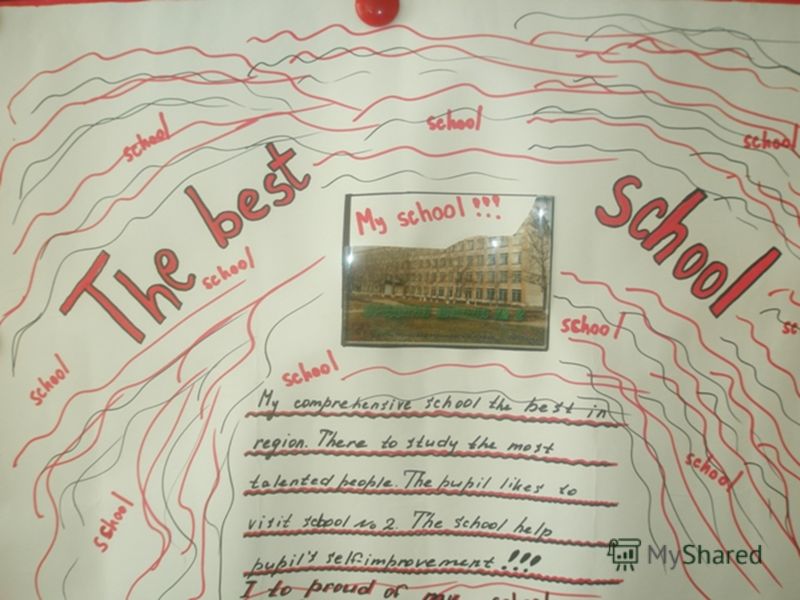 The best
school
My school!!!
school
school
school
school
school
school
school
school
school
My comprehensive school the best in
region. There to study the most
talented people. The pupil likes to
visit school № 2. The school help
pupil's self-improvement!!!
I to proud of my school
MyShared